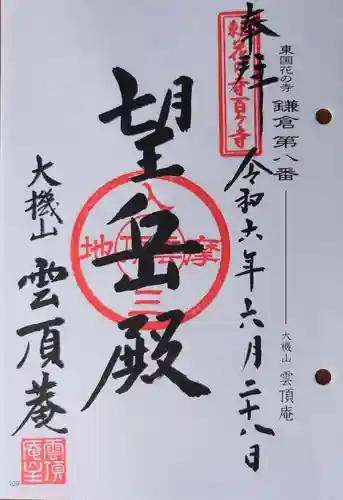 東国花の寺 鎌倉 第八番
大機山 雲頂庵
奉拝
東国花の寺百ヶ寺
令和六年六月二十八日
望岳殿
大機山
雲頂庵
雲頂
庵主
109